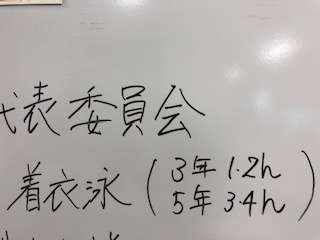 代表委員会
着衣泳(3年 1.2h
5年 3.4h)